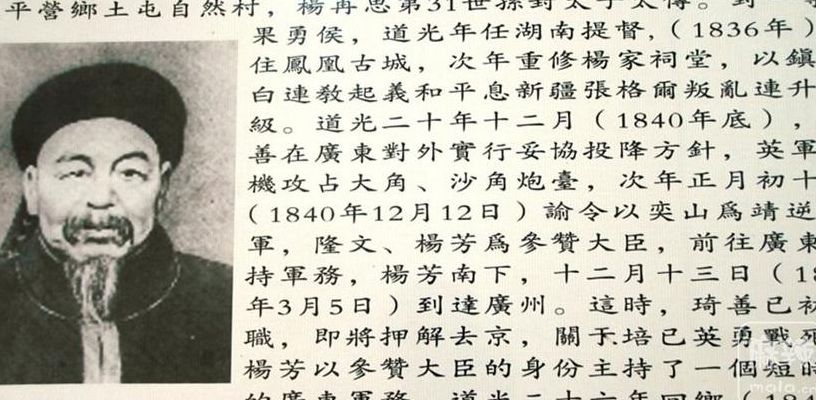 平營鄉土屯自然村，楊再思第31世孫封太子太傅。封一等
果勇侯，道光年任湖南提督，（1836年）
住鳳凰古城，次年重修楊家祠堂，以鎮
白連教起義和平息新疆張格爾叛亂連升
級。道光二十年十二月（1840年底），
善在廣東對外實行妥協投降方針，英軍
機攻占大角、沙角炮臺，次年正月初十
（1840年12月12日）諭令以奕山爲靖逆
軍，隆文、楊芳爲參贊大臣，前往廣東
持軍務，楊芳南下，十二月十三日（18
年3月5日）到達廣州。這時，琦善已初
職，即將押解去京，關于培已英勇戰死
楊芳以參贊大臣的身份主持了一個短時
的廣東軍務。道光二十六年回鄉（184
mala.cn